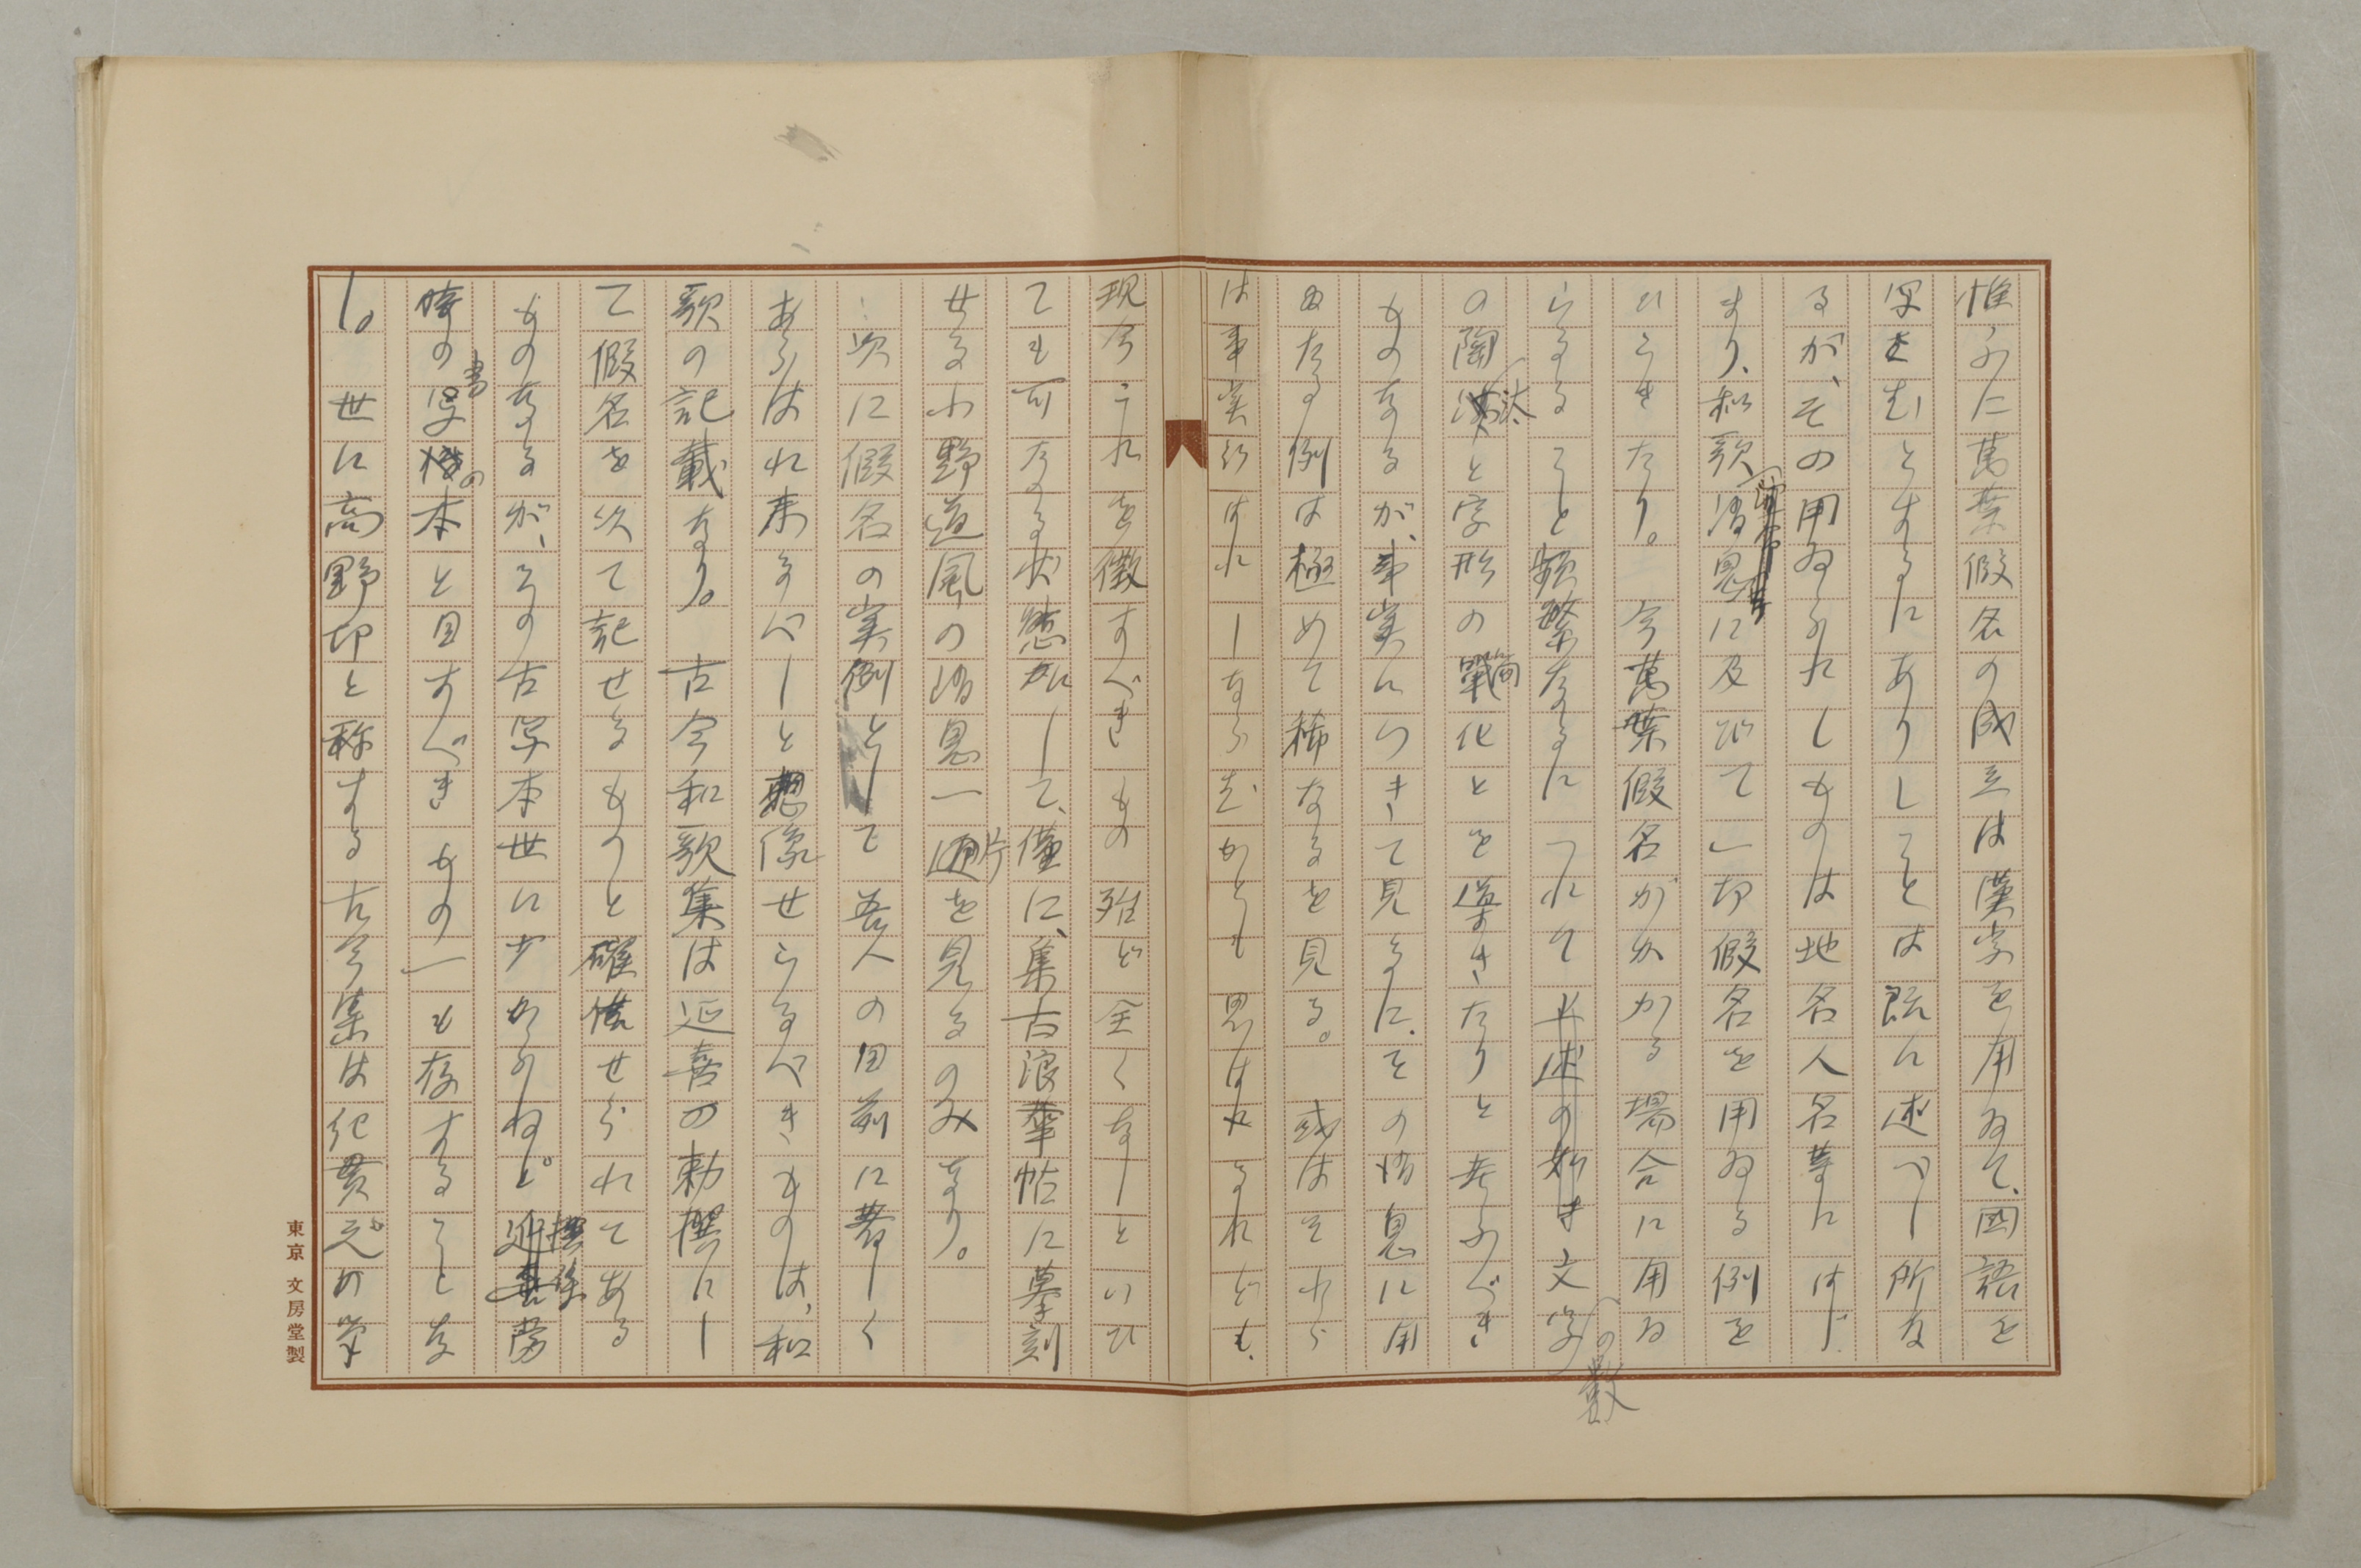 惟ふに萬葉假名の成立は漢字を用ゐて、國語を
写さむとするにありしことは既に述べし所な
るが、その用ゐられしものは地名人名等には
まり、和歌消息に及びて一切假名を用ゐる例を
ひらきたり。 今萬葉假名がかかる場合に用ゐ
らるること頻繁なるにつれて 文字の数
の陶汰と字形の簡化とを導きたりと考ふべき
ものなるが、事実につきて見るに、その消息に用
ゐたる例は極めて稀なるを見る。 或はそれら
は事実行はれしならむかとも思はれるれども、
現今これを徴すべきもの殆ど全くなしといひ
ても可なる状態にして、僅に、集古浪華帖に摹刻
せる小野道風の消息一片を見るのみなり。
次に假名の実例として吾人の目前に著しく
あらはれ来るべしと想像せらるべきものは、和
歌の記載なり。 古今和歌集は延喜の勅撰にし
て假名を以て記せるものと確信せられてある
ものなるが、その古写本世に少からねど、撰集当
時の書写の本と目すべきもの一も存することな
し。 世に高野切と称する古今集は紀貫之の筆
東京 文房堂製